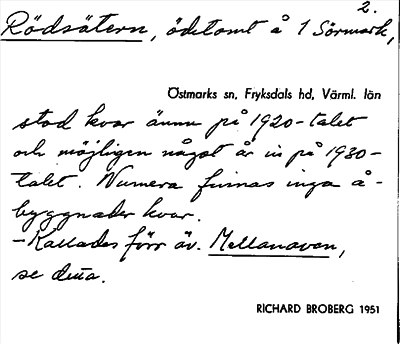 2.
Rödsätern, ödetomt å 1 Sörmark,
Östmarks sn, Fryksdals hd, Värml. län
stod kvar ännu på 1920-talet
och möjligen något år in på 1930-
talet. Numera finnas inga å-
byggnader kvar.
- Kallades förr äv. Mellanavan,
se detta.
RICHARD BROBERG 1951